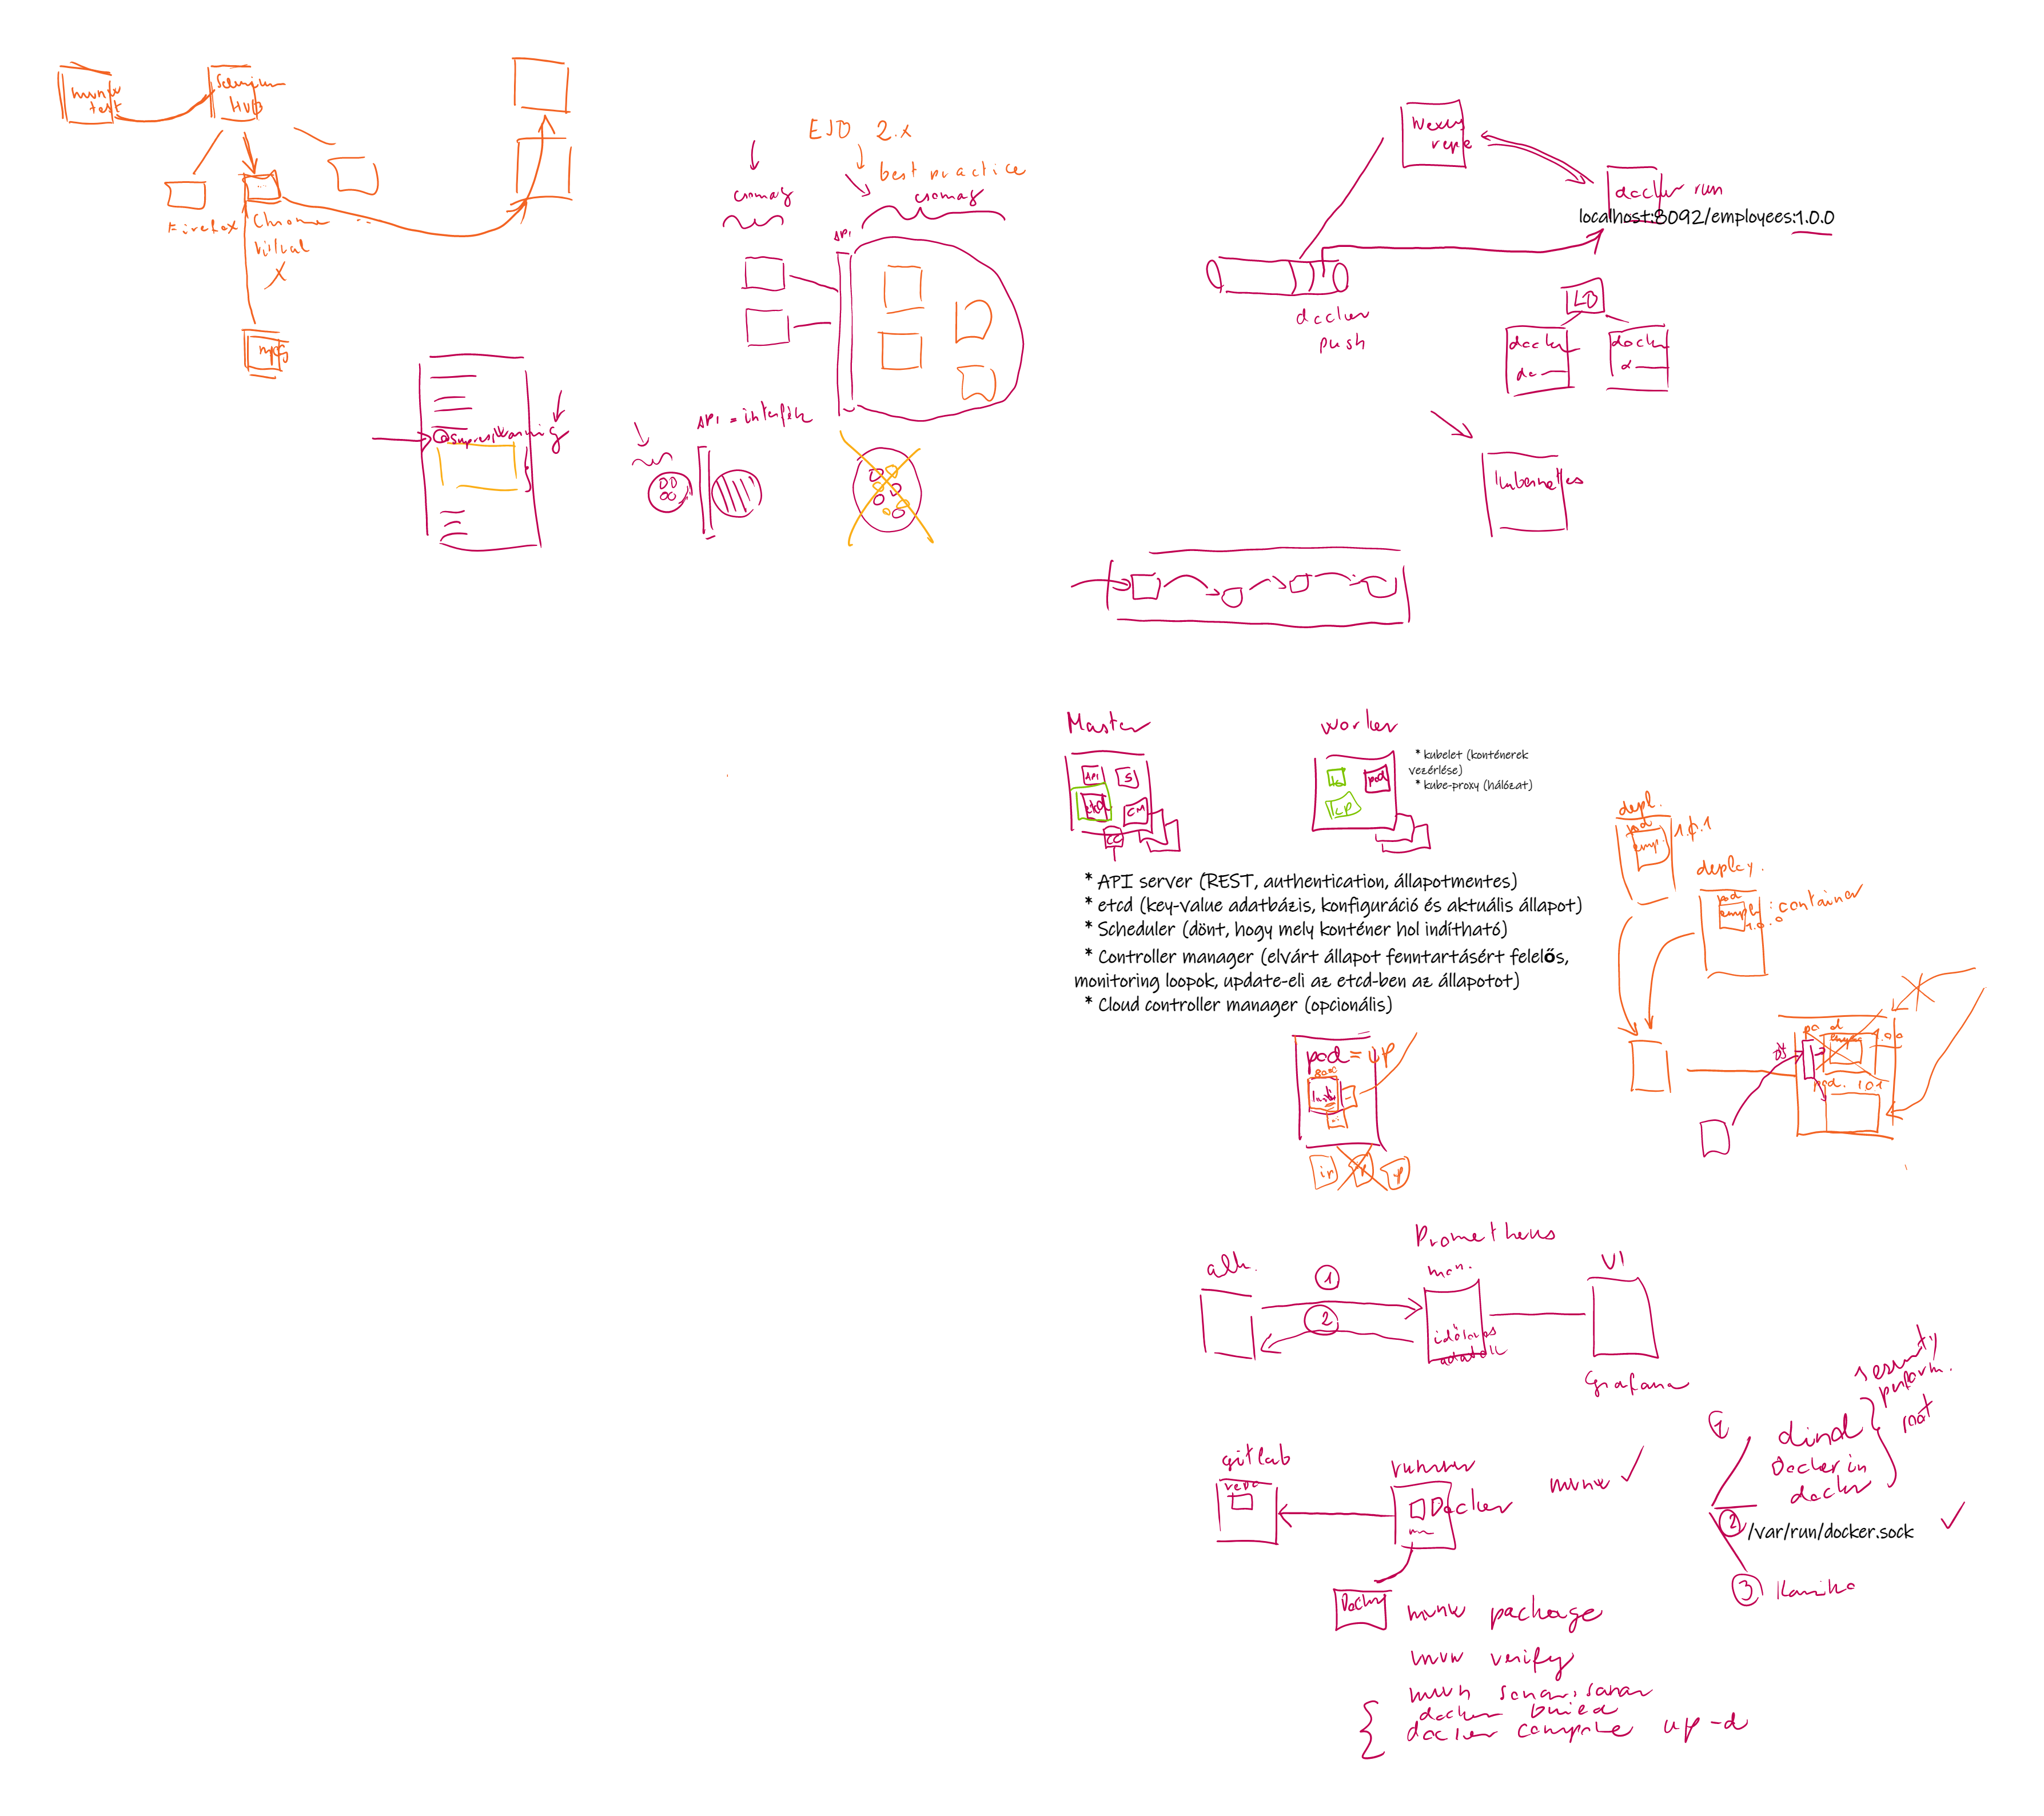 mvnw
test
Selenium
HUB
Firefox
Chrome
virtual
X
EJB 2.x
best practice
csomag
csomag
API
API = interfész
@SuppressWarning
Nexus
repo
docker run
localhost:8092/employees:1.0.0
docker
push
LB
docker
docker
Kubernetes
Master
API
S
etcd
CM
CC
worker
k
kp
pod
* kubelet (konténerek
vezérlése)
* kube-proxy (hálózat)
* API server (REST, authentication, állapotmentes)
* etcd (key-value adatbázis, konfiguráció és aktuális állapot)
* Scheduler (dönt, hogy mely konténer hol indítható)
* Controller manager (elvárt állapot fenntartásért felelős,
monitoring loopok, update-eli az etcd-ben az állapotot)
* Cloud controller manager (opcionális)
depl.
pod
emp.
1.0.1
deploy.
pod
empl
1.0.0
: container
pod
1.0.0
pod. 1.0.1
pod = IP
8080
Prometheus
alk.
1
2
mon.
idősoros
adatok
UI
Grafana
gitlab
repo
runner
Docker
mvnw ✓
Docker
mvnw package
mvnw verify
mvn sonar:sonar
docker build
docker compose up -d
1
dind
Docker in
docker
security
perform.
root
2
/var/run/docker.sock ✓
3 Kaniko